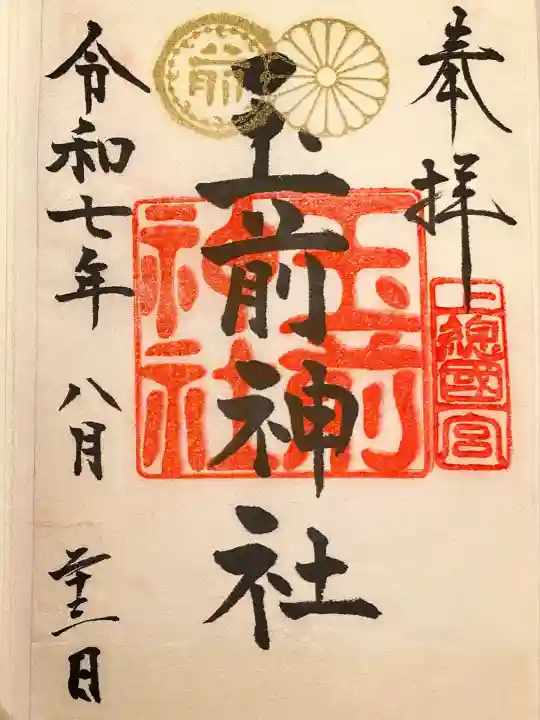 奉拝
上総國一宮
玉前神社
玉前神社
前
令和七年 八月 二十三日